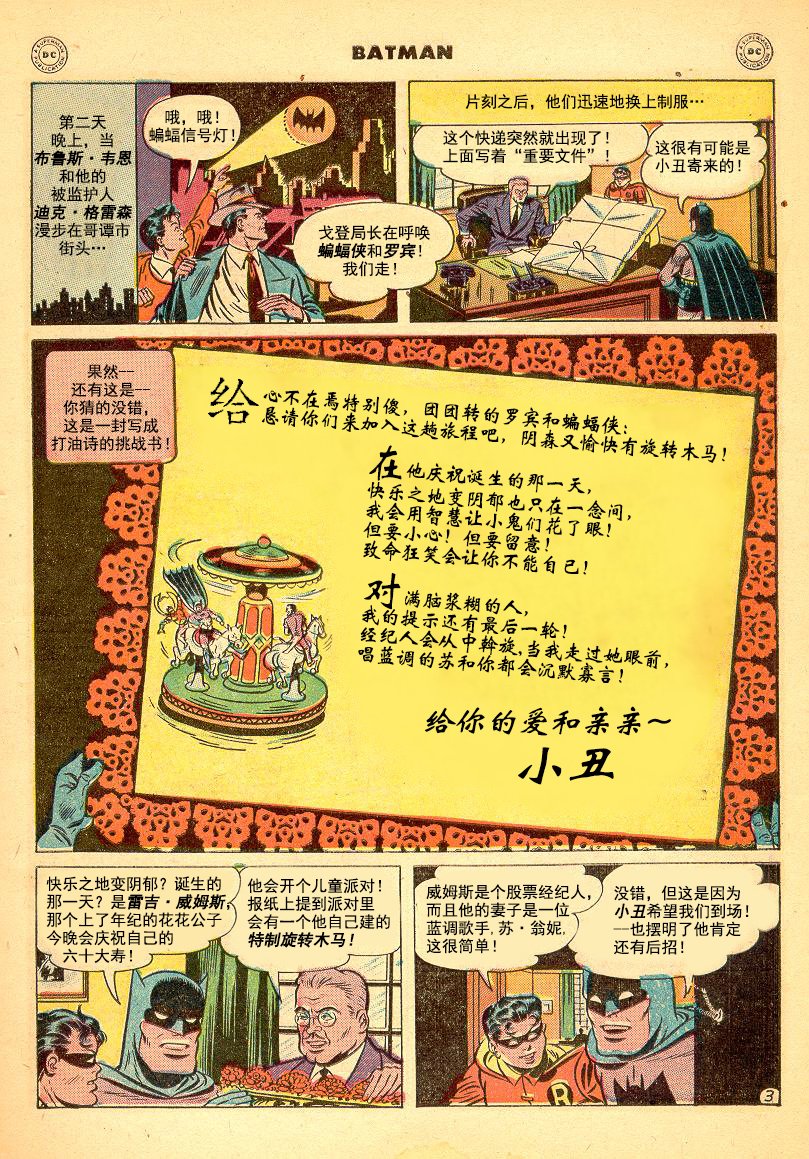 A SUPERMAN DC PUBLICATION
BATMAN
A SUPERMAN DC PUBLICATION
第二天
晚上，当
布鲁斯·韦恩
和他的
被监护人
迪克·格雷森
漫步在哥谭市
街头…
哦，哦！
蝙蝠信号灯！
戈登局长在呼唤
蝙蝠侠和罗宾！
我们走！
片刻之后，他们迅速地换上制服…
这个快递突然就出现了！
上面写着“重要文件”！
这很有可能是
小丑寄来的！
果然--
还有这是--
你猜的没错，
这是一封写成
打油诗的挑战书！
给心不在焉特别傻，团团转的罗宾和蝙蝠侠：
恳请你们来加入这趟旅程吧，阴森又愉快有旋转木马！
在他庆祝诞生的那一天，
快乐之地变阴郁也只在一念间，
我会用智慧让小鬼们花了眼！
但要小心！但要留意！
致命狂笑会让你不能自已！
对满脑浆糊的人，
我的提示还有最后一轮！
经纪人会从中斡旋，当我走过她眼前，
唱蓝调的苏和你都会沉默寡言！
给你的爱和亲亲～
小丑
快乐之地变阴郁？诞生的
那一天？是雷吉·威姆斯，
那个上了年纪的花花公子
今晚会庆祝自己的
六十大寿！
他会开个儿童派对！
报纸上提到派对里
会有一个他自己建的
特制旋转木马！
威姆斯是个股票经纪人，
而且他的妻子是一位
蓝调歌手，苏·翁妮，
这很简单！
没错，但这是因为
小丑希望我们到场！
--也摆明了他肯定
还有后招！
R
3